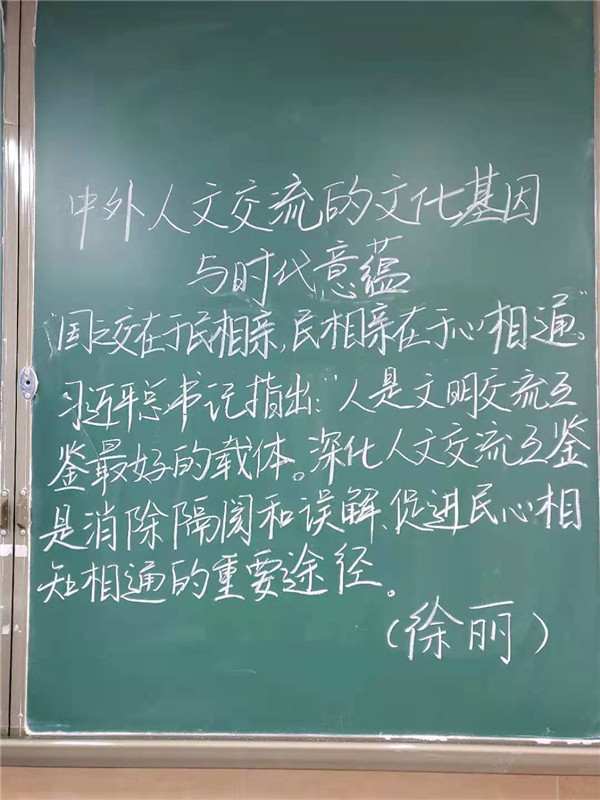 中外人文交流的文化基因
与时代意蕴
"国之交在于民相亲,民相亲在于心相通。
习近平总书记指出:"人是文明交流互
鉴最好的载体。深化人文交流互鉴
是消除隔阂和误解、促进民心相
知相通的重要途径。
(徐丽)